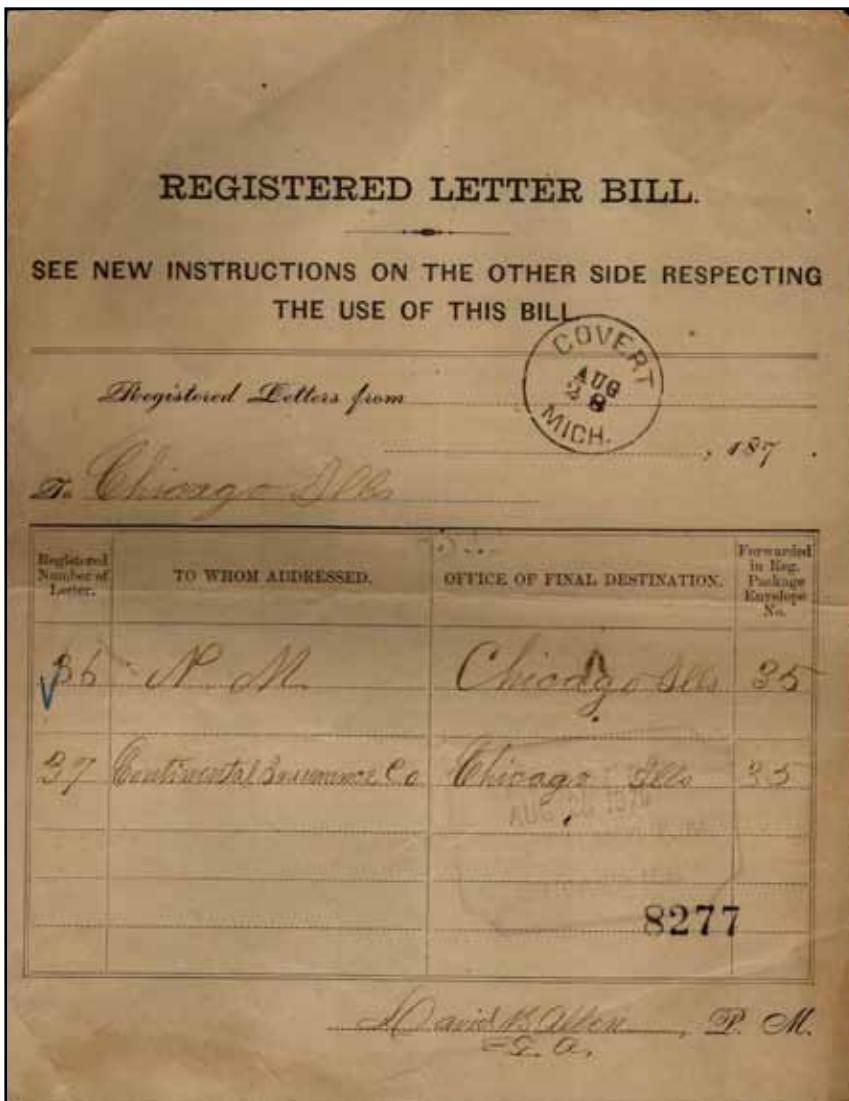 REGISTERED LETTER BILL.
SEE NEW INSTRUCTIONS ON THE OTHER SIDE RESPECTING
THE USE OF THIS BILL
COVERT
AUG
28
MICH.
Registered Letters from
, 187 .
To Chicago Ills
Registered Number of Letter.
TO WHOM ADDRESSED.
OFFICE OF FINAL DESTINATION.
Forwarded in Reg. Package Envelope No.
36 N. M. Chicago Ills 35
37 Continental Insurance Co Chicago Ills 35
AUG
8277
David B Allen, P. M.